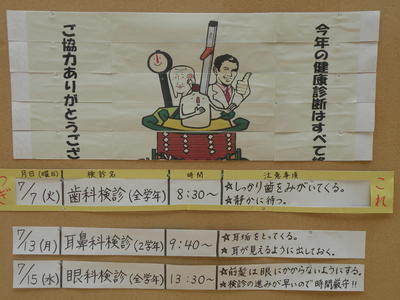 今年の健康診断はすべて
ご協力ありがとうござ
月日(曜日) 検診名 時間 注意事項
7/7(火) 歯科検診(全学年) 8:30〜 ★しっかり歯をみがいてくる。
★静かに待つ。
7/13(月) 耳鼻科検診(2学年) 9:40〜 ★耳垢をとってくる。
★耳が見えるように出しておく。
7/15(水) 眼科検診(全学年) 13:30〜 ★前髪は眼にかからないようにする。
★検診の進みが早いので時間厳守!!
つぎ
これ